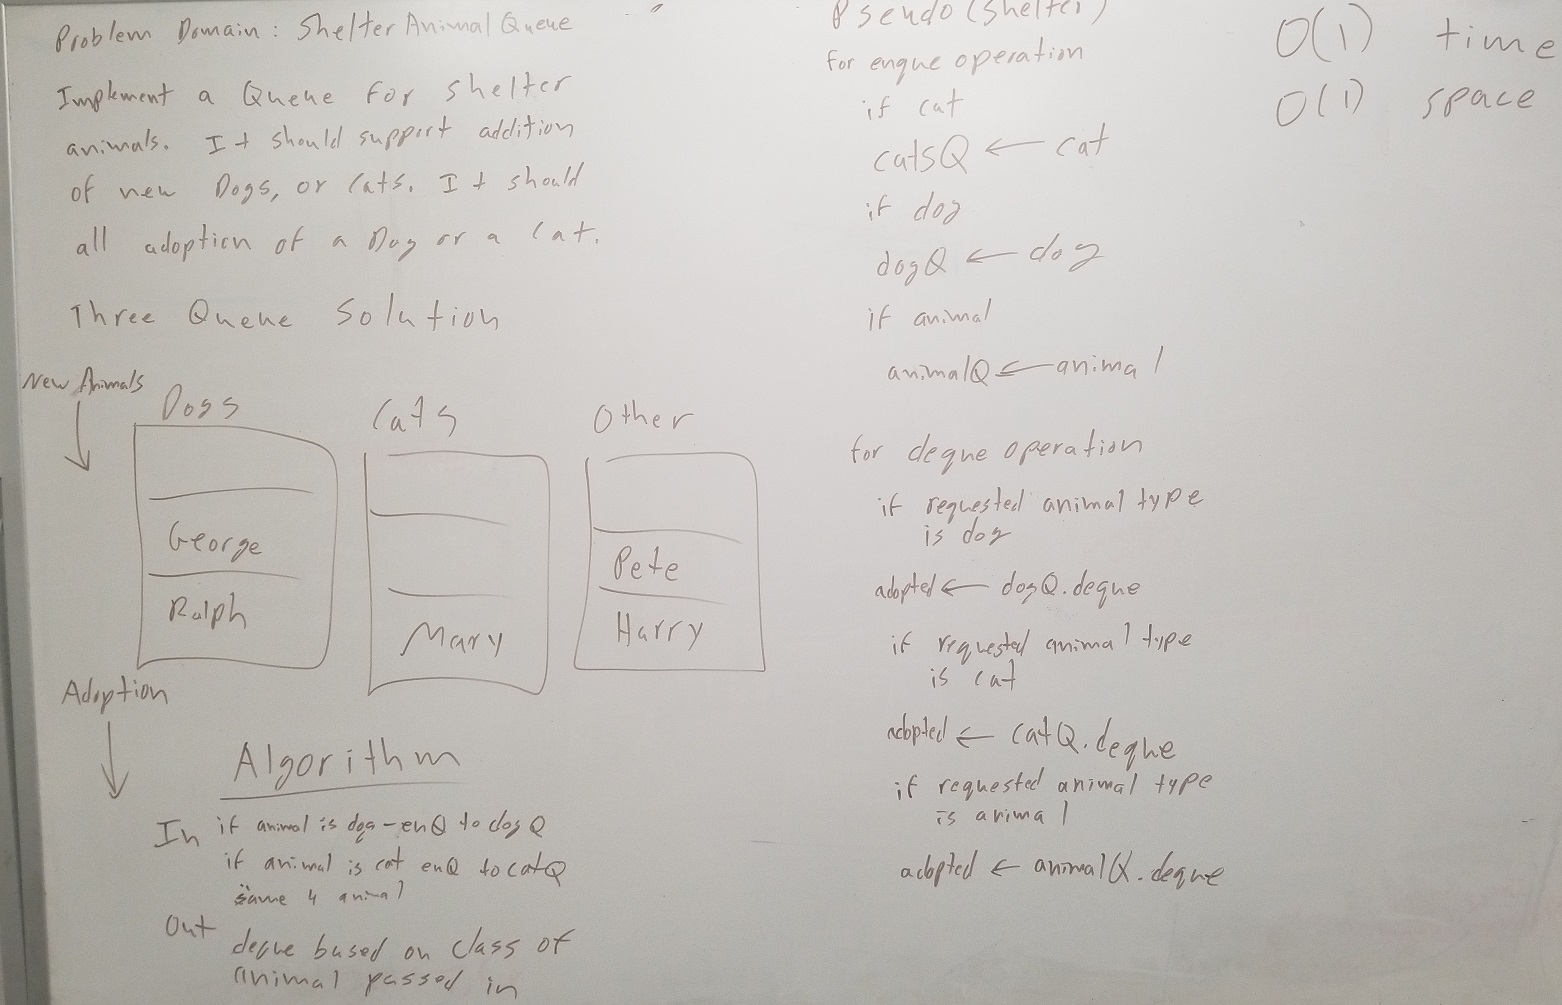 Problem Domain: Shelter Animal Queue
Implement a Queue for shelter
animals. It should support addition
of new Dogs, or Cats. It should
all adoption of a Dog or a Cat.
Three Queue Solution
New Animals
Dogs
George
Ralph
Cats
Mary
Other
Pete
Harry
Adoption
Algorithm
In if animal is dog - enQ to dogQ
if animal is cat enQ to catQ
same 4 animal
Out deque based on class of
animal passed in
Pseudo (Shelter)
for enque operation
if cat
catsQ ← cat
if dog
dogQ ← dog
if animal
animalQ ← animal
for deque operation
if requested animal type
is dog
adopted ← dogQ.deque
if requested animal type
is cat
adopted ← catQ.deque
if requested animal type
is animal
adopted ← animalQ.deque
O(1) time
O(1) space